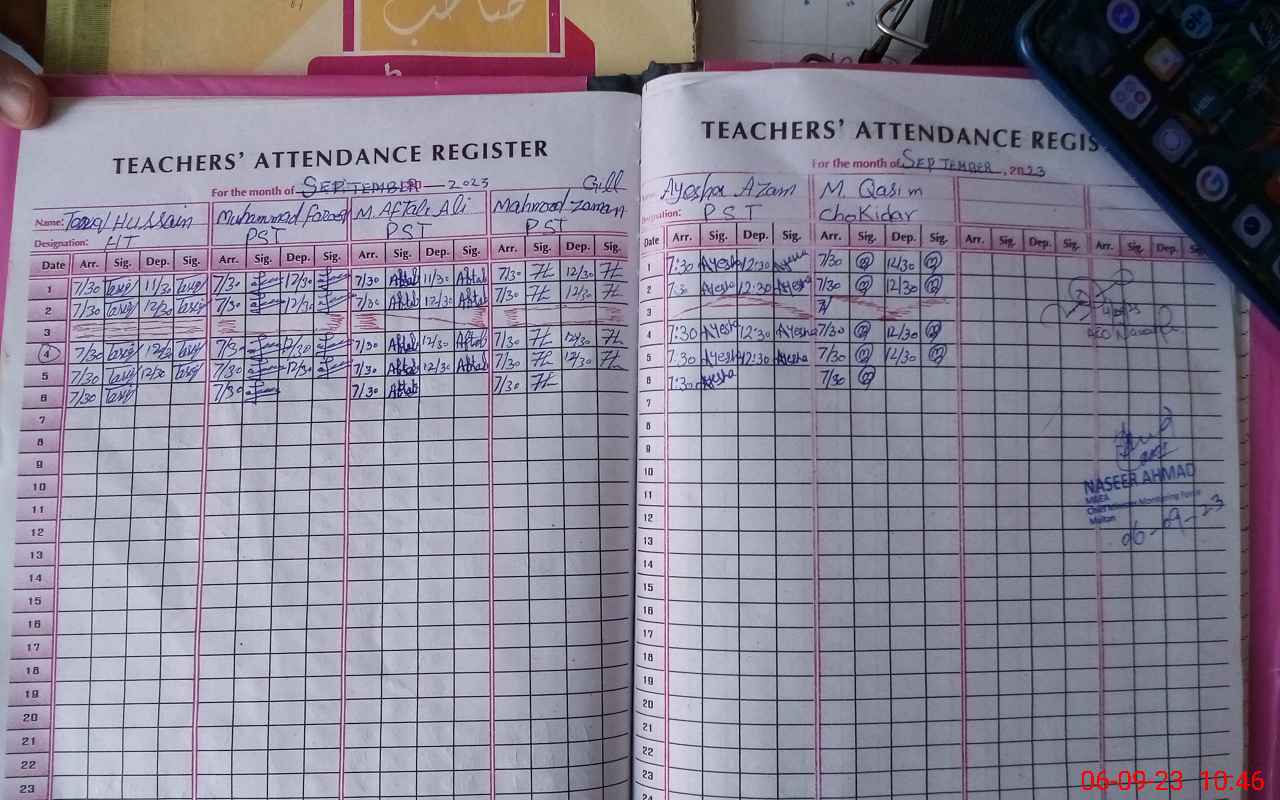 TEACHERS' ATTENDANCE REGISTER
For the month of SEPTEMBER 2023
Gill
Name: Hussain Muhammad Farooq M. Aftab Ali Mahmood Zaman
Designation: HT PST PST PST
Date Arr. Sig. Dep. Sig. Arr. Sig. Dep. Sig. Arr. Sig. Dep. Sig. Arr. Sig. Dep. Sig.
1 7/30 11/30 7/30 12/30 7/30 Aftab 11/30 Aftab 7/30 12/30
2 7/30 12/30 7/30 12/30 7/30 Aftab 12/30 Aftab 7/30 12/30
3
4 7/30 12/30 7/30 12/30 7/30 Aftab 12/30 Aftab 7/30 12/30
5 7/30 12/30 7/30 12/30 7/30 Aftab 12/30 Aftab 7/30 12/30
6 7/30 7/30 7/30 Aftab 7/30
7
8
9
10
11
12
13
14
15
16
17
18
19
20
21
22
23
TEACHERS' ATTENDANCE REGIS
For the month of SEPTEMBER, 2023
Ayesha Azam M. Qasim
Designation: PST Chokidar
Date Arr. Sig. Dep. Sig. Arr. Sig. Dep. Sig. Arr. Sig. Dep. Sig. Arr. Sig. Dep. Sig.
1 7:30 Ayesha 12:30 Ayesha 7/30 12/30
2 7:30 Ayesha 12:30 Ayesha 7/30 12/30
3
4 7:30 Ayesha 12:30 Ayesha 7/30 12/30
5 7:30 Ayesha 12:30 Ayesha 7/30 12/30
6 7:30 Ayesha 7/30
7
8
9
10
11
12
13
14
15
16
17
18
19
20
21
22
23
24
NASEER AHMAD
MEA
Chief Minister Monitoring Force
Multan
06-09-23
06-09-23 10:46